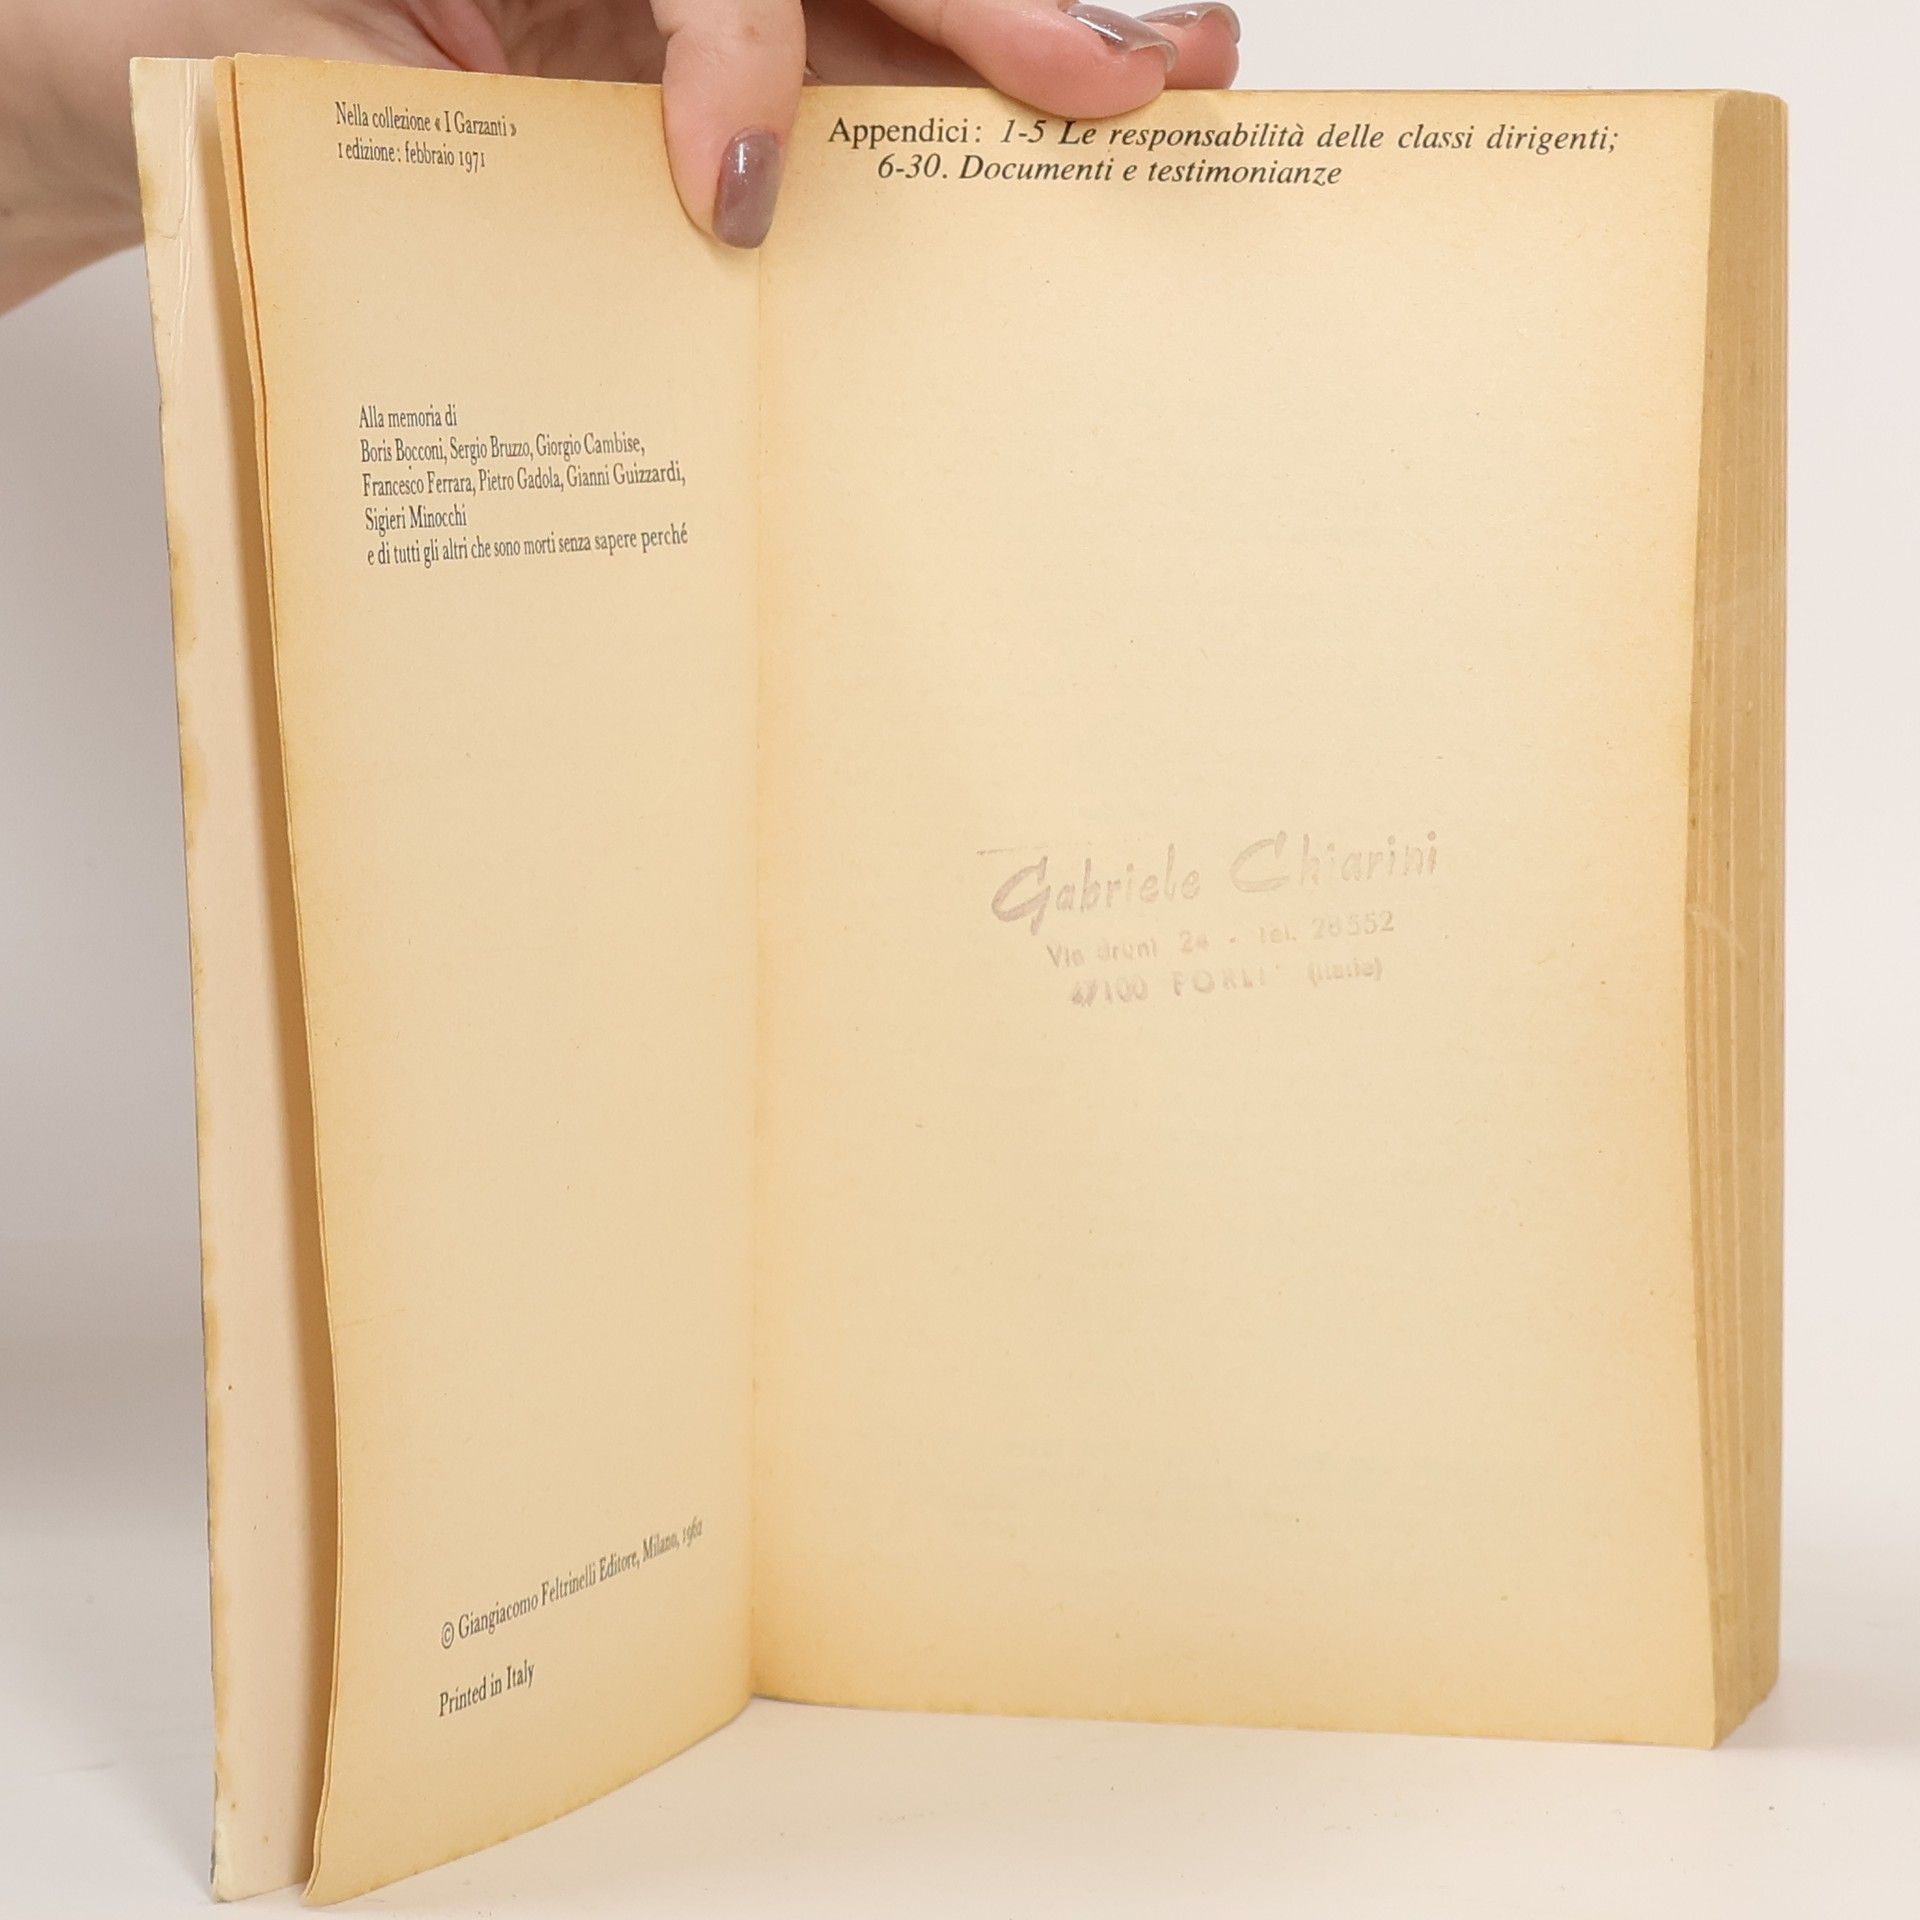 Nella collezione « I Garzanti »
1 edizione: febbraio 1971
Alla memoria di
Boris Bocconi, Sergio Bruzzo, Giorgio Cambise,
Francesco Ferrara, Pietro Gadola, Gianni Guizzardi,
Sigieri Minocchi
e di tutti gli altri che sono morti senza sapere perché
© Giangiacomo Feltrinelli Editore, Milano, 1962
Printed in Italy
Appendici: 1-5 Le responsabilità delle classi dirigenti;
6-30. Documenti e testimonianze
Gabriele Chiarini
Via 24 - tel. 28552
47100 FORLI' (Italia)